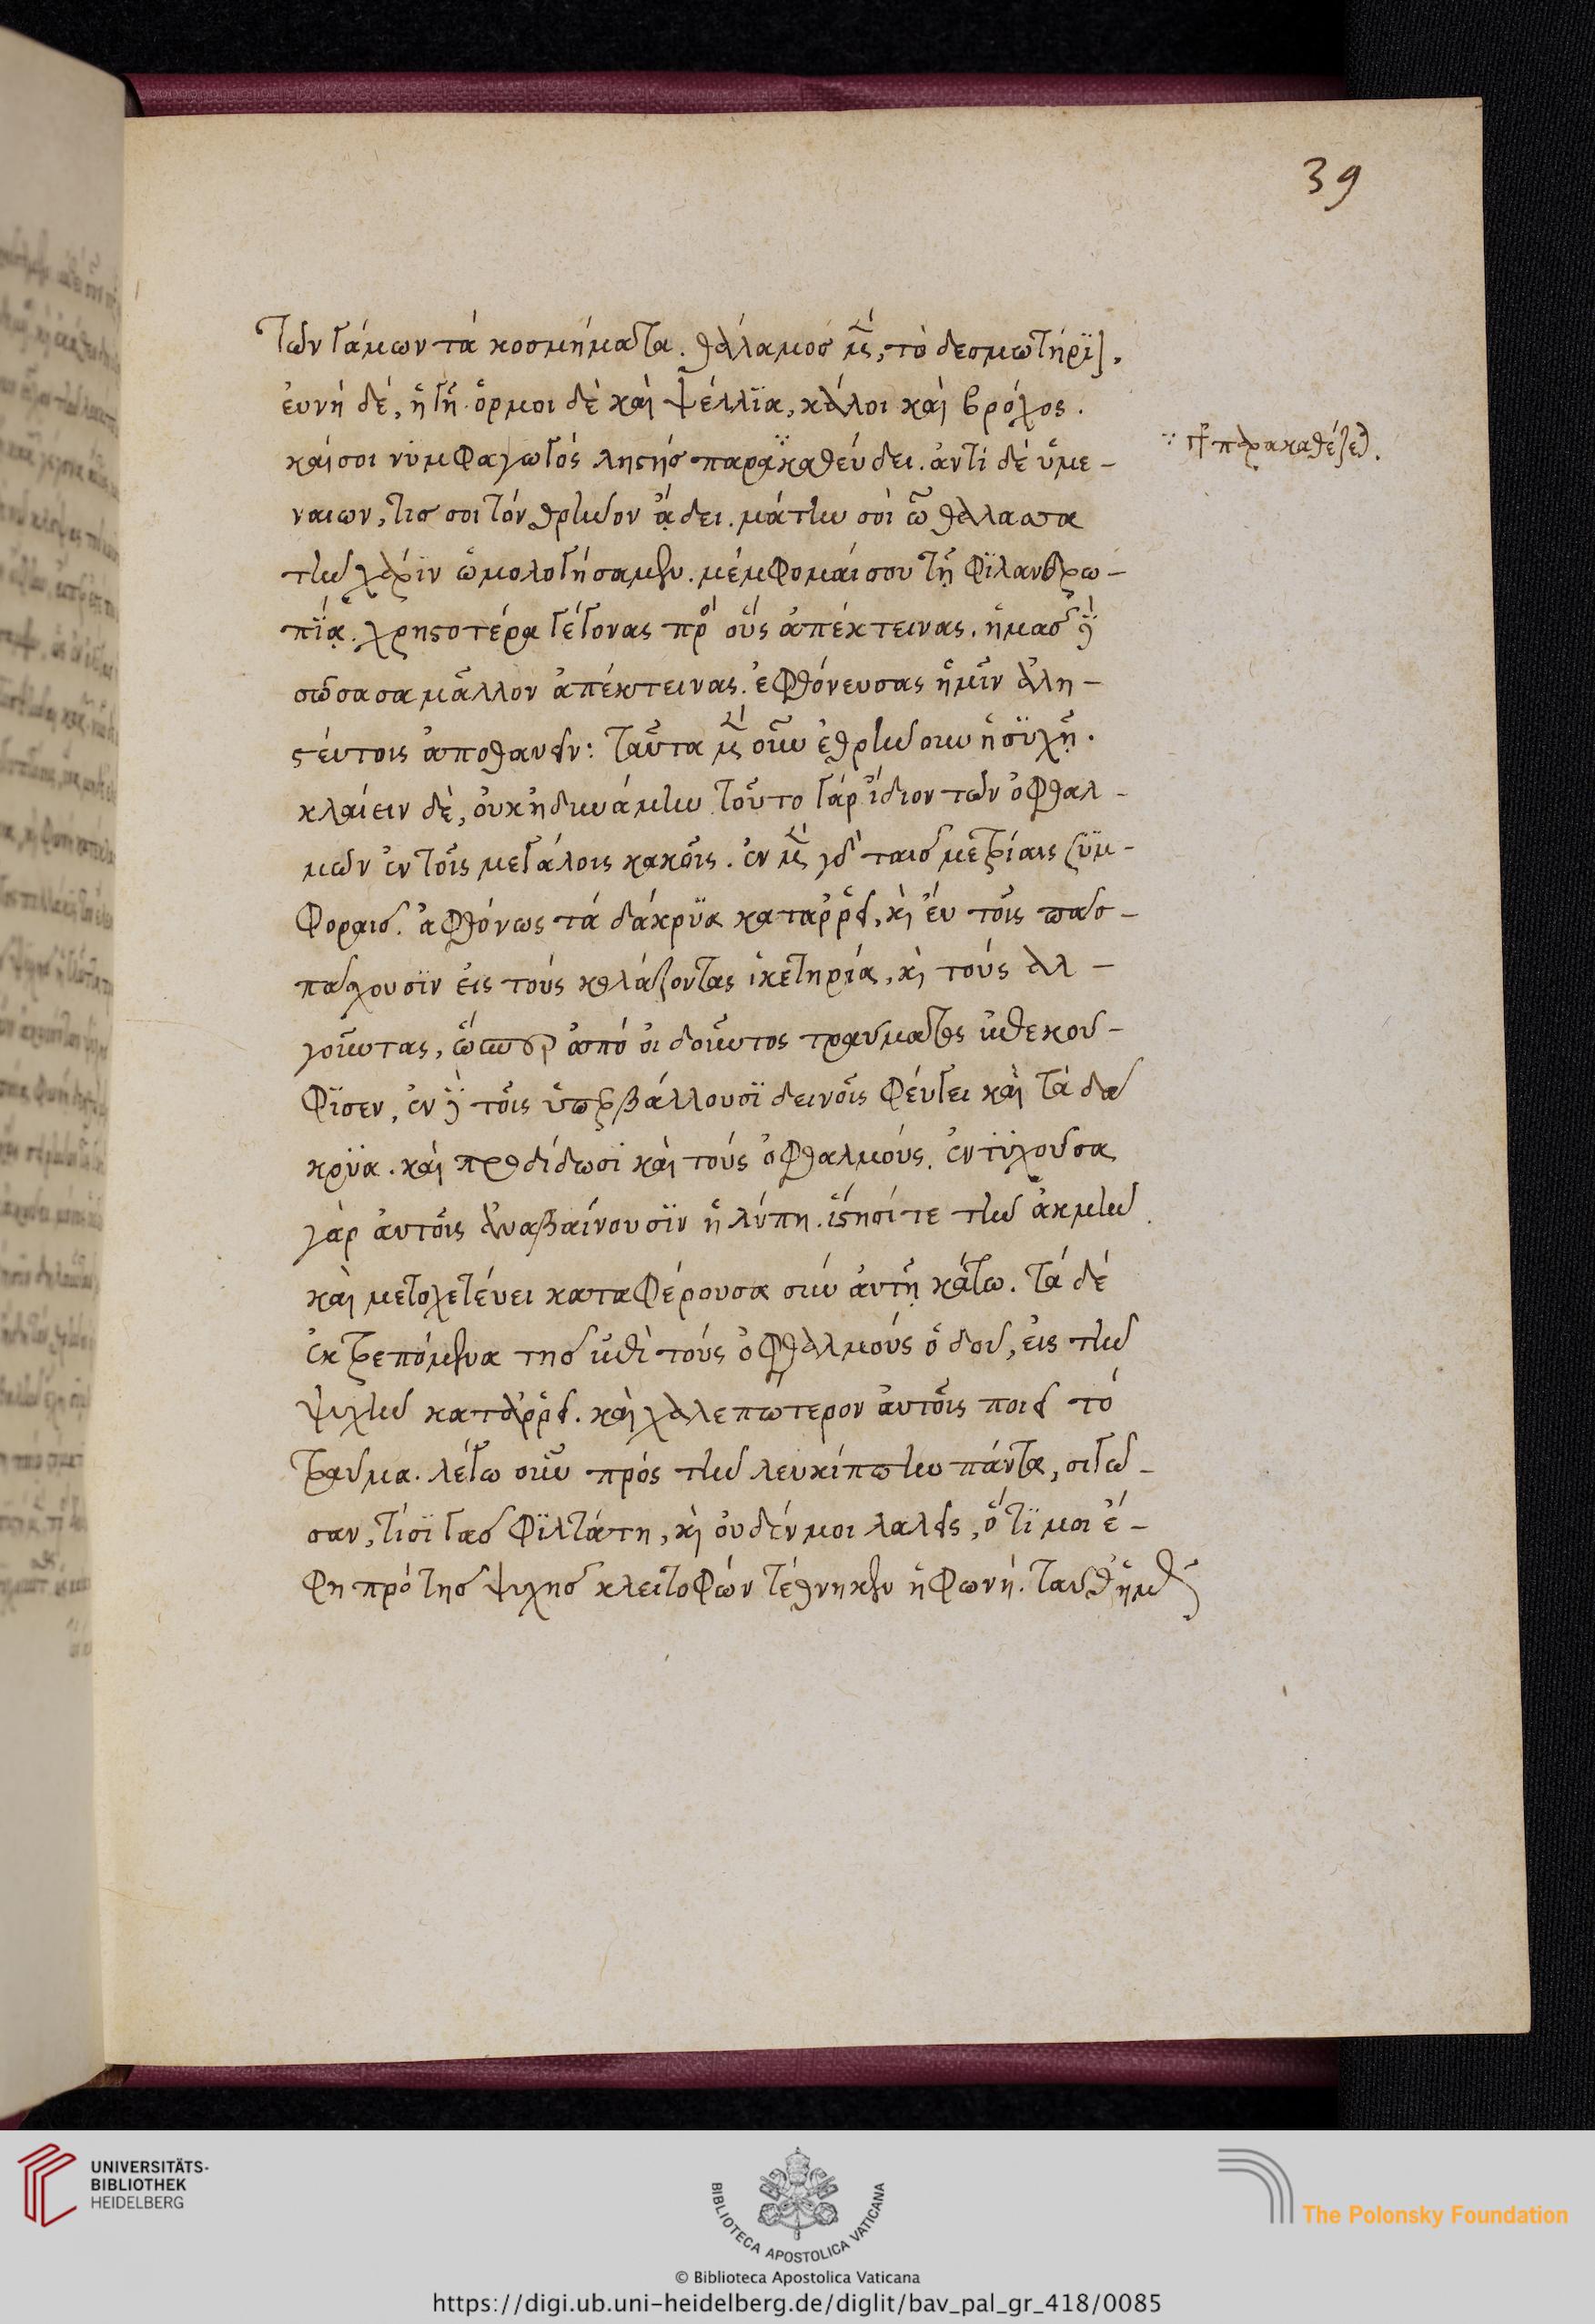 39
τῶν γάμων τὰ κοσμήματα. θάλαμος μὲν, τὸ δεσμωτήριον.
ἐυνὴ δέ, ἡ γῆ. ὅρμοι δὲ καὶ ψέλλϊα, κάλοι καὶ βρόχος.
καί σοι νυμφαγωγός λῃστής παρακαθεύδει. ἀντί δέ ὑμε-
ναιων, τίς σοι τόν θρῆνον ᾄδει. μάτην σοὶ ὦ θάλασσα
τὴν χάρϊν ὡμολογήσαμεν. μέμφομαί σου τῇ φϊλανθρω-
πίᾳ. χρηστοτέρα γέγονας πρὸς οὕς ἀπέκτεινας. ἡμᾶς δὲ
σώσασα μᾶλλον ἀπέκτεινας. ἐφθόνευσας ἡμῖν ἀλῃ-
στεύτοις ἀποθανεῖν: ταῦτα μὲν οὖν ἐθρήνουν ἡσυχῇ.
κλαίειν δὲ, οὐκ ἠδυνάμην. τοῦτο γάρ ἴδιον τῶν ὀφθαλ-
μῶν ἐν τοῖς μεγάλοις κακοῖς. ἐν μὲν γὰρ ταῖς μετρίαις συμ-
φοραῖς. ἀφθόνως τὰ δάκρϋα καταρρεῖ, καὶ ἔν τοῖς πασ-
πάσχουσϊν εἰς τοὺς κολάζοντας ἱκετηρία, καὶ τοὺς ἀλ-
γοῦντας, ὥσπερ ἀπό οἰδοῦντος τραύματος ἐπεκού-
φϊσεν, ἐν δὲ τοῖς ὑπερβάλλουσϊ δεινοῖς φεύγει καὶ τὰ δά
κρϋα. καὶ προδίδωσϊ καὶ τοὺς ὀφθαλμούς. ἐντυχοῦσα
γὰρ αὐτοῖς ἀναβαίνουσϊν ἡ λύπη. ἵστησί τε τὴν ἀκμὴν
καὶ μετοχετεύει καταφέρουσα σὺν αὐτῇ κάτω. τά δέ
ἐκτρεπόμενα τῆς ἐπὶ τοὺς ὀφθαλμοὺς ὁδοῦ, εἰς τὴν
ψυχὴν καταρρεῖ. καὶ χαλεπώτερον αὐτοῖς ποιεῖ τό
τραῦμα. λέγω οὖν πρός τὴν λευκίππην πάντα, σιγῶ-
σαν, τί σϊγᾷς φϊλτάτη, καὶ οὐδέν μοι λαλεῖς, ὅτϊ μοι ἔ-
φη πρό τῆς ψυχῆς κλειτοφῶν τέθνηκεν ἡ φωνή. ταῦθ' ἡμᾶς
παρακαθέζεται.
UNIVERSITÄTS-
BIBLIOTHEK
HEIDELBERG
BIBLIOTECA APOSTOLICA VATICANA
The Polonsky Foundation
© Biblioteca Apostolica Vaticana
https://digi.ub.uni-heidelberg.de/diglit/bav_pal_gr_418/0085